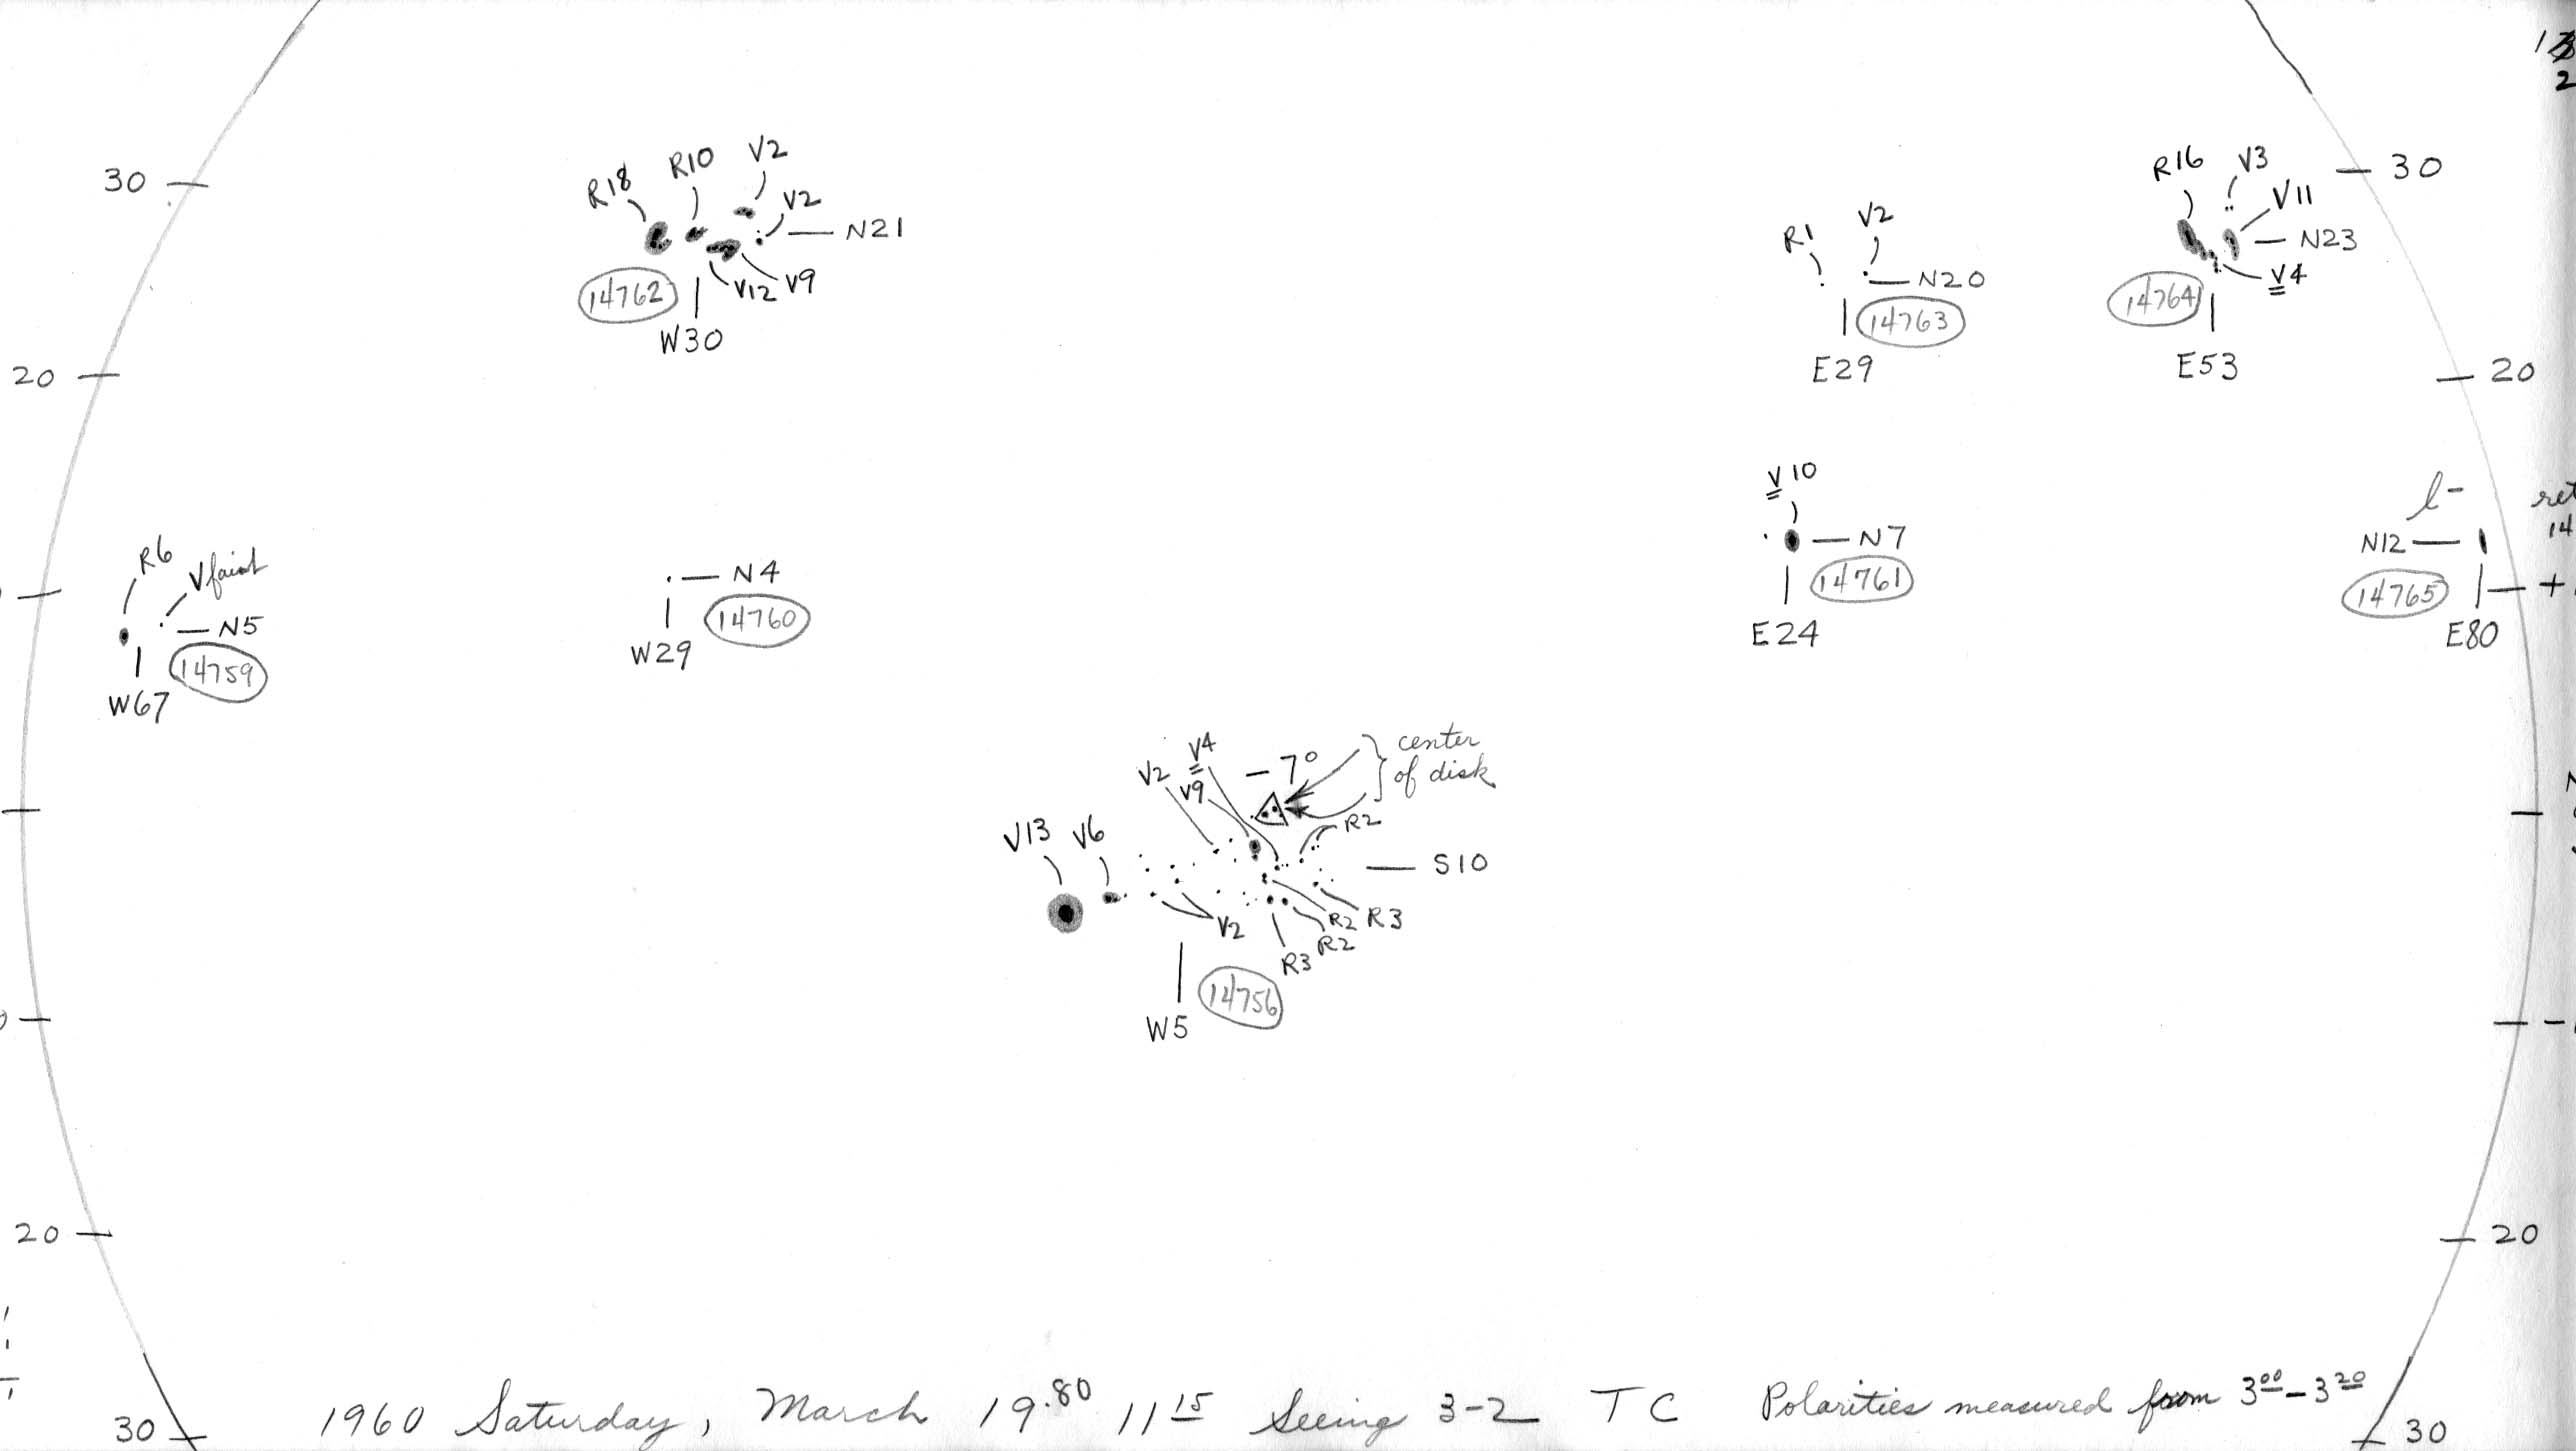 30
R18 R10 V2
V2
N21
14762
V12 V9
W30
R1 V2
N20
14763
E29
R16 V3
V11
N23
V4
14764
E53
30
20
20
R6 V faint
N5
14759
W67
N4
14760
W29
V10
N7
14761
E24
l-
ret
14
N12
14765
+
E80
V4
V2
V9
-7° center
of disk
V13 V6
R2
S10
V2
R2 R3
R2
R3
14756
W5
20
20
30
1960 Saturday, March 19.80 11 15 Seeing 3-2 TC Polarities measured from 3 00 - 3 20
30